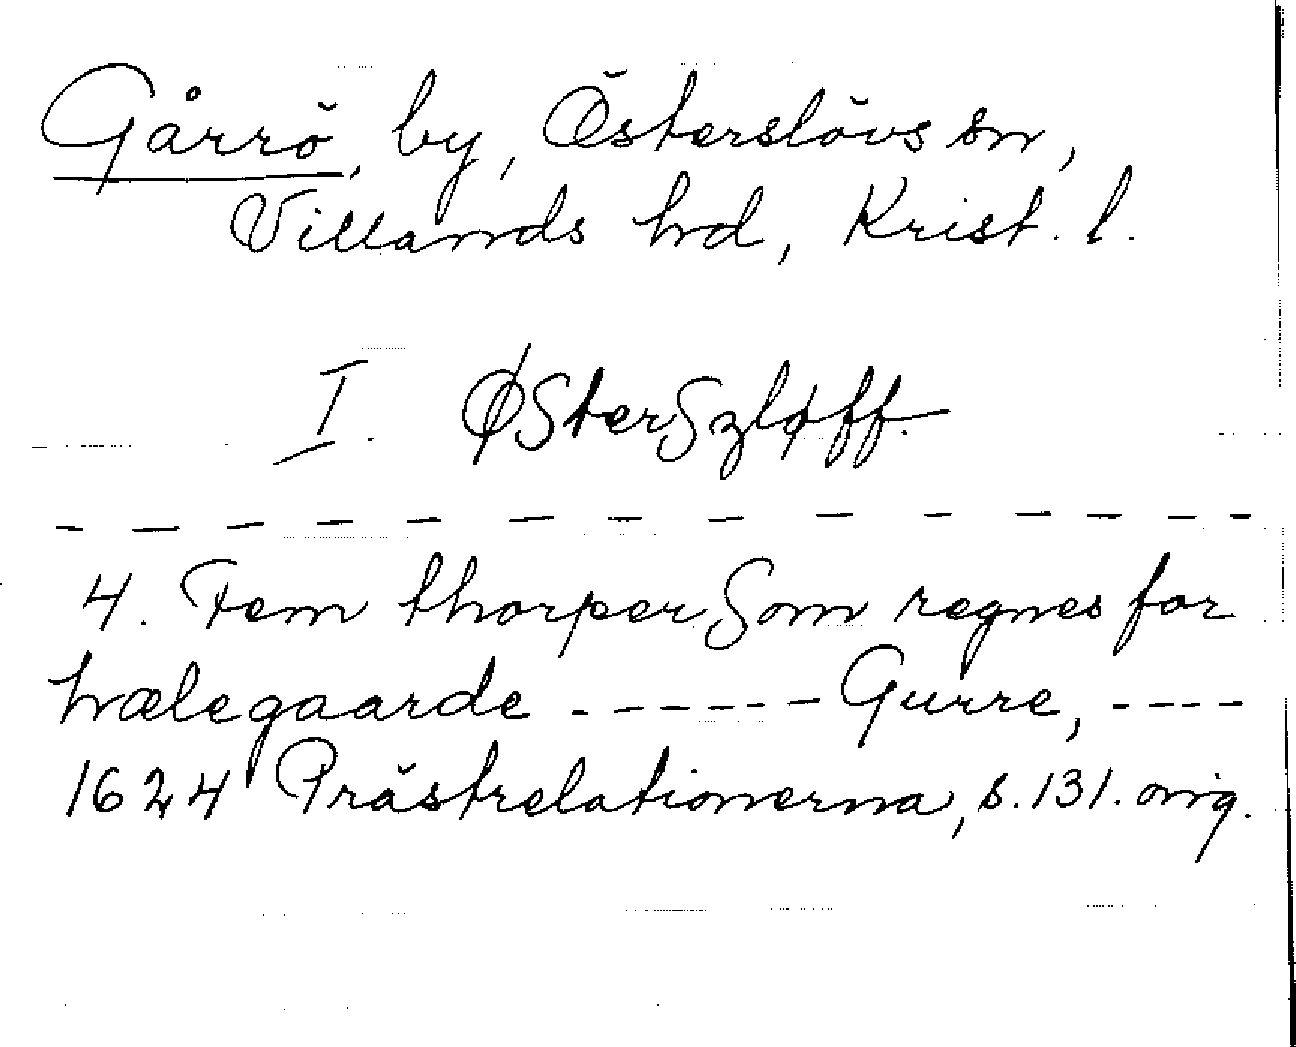 Gårrö, by, Österslövs sn,
Villands hd, Krist. l.
I. ØSterSzløff.
4. Fem thorper Som regnes for
hælegaarde - - - - - - Gurre, - - - -
1624 Prästrelationerna, s. 131. orig.